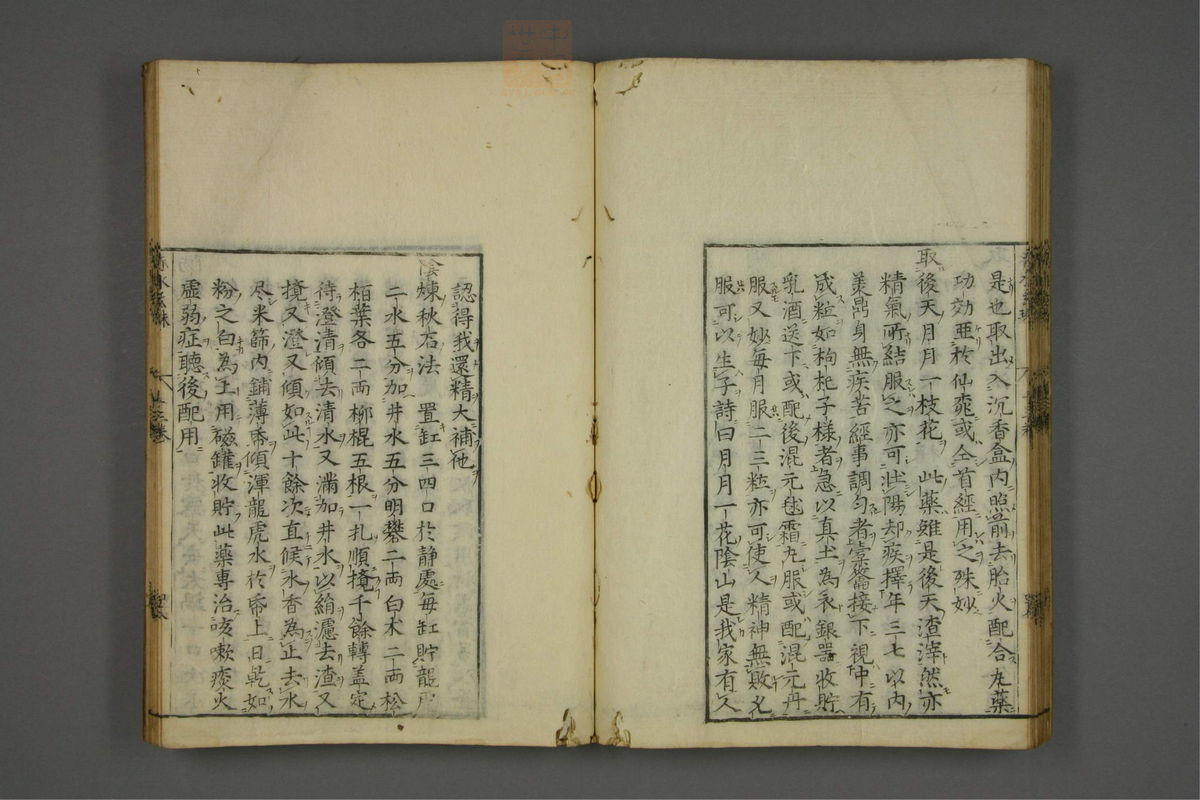 是也取出入沉香盒内照前去胎火配合丸藥
功効亞於仙 或全首經用之殊妙
取後天月月一枝花 此藥雖是後天渣滓然亦
精氣所結服之亦可壯陽却疾擇年三七以内
美鼎身無疾苦經事調匀者 接下視中有
成粒如枸杞子様者急以真土為衣銀器收貯
乳酒送下或配後混元毬霜丸服或配混元丹
服又妙每月服二三粒亦可使人精神無敗久
服可以生子詩曰月月一花陰山是我家有人
認得我還精大補他
陰煉秋石法 置缸三四口於静處每缸貯龍虎
二水五分加井水五分明礬二兩白术二兩松
栢葉各二兩柳棍五根一扎順攪千餘轉盖定
待澄清傾去清水又滿加井水以絹濾去渣又
攪又澄又傾如此十餘次直候水香為止去水
尽米篩内鋪薄帋傾渾龍虎水於帋上日乾如
粉之白為王用磁罐收貯此藥專治咳嗽痰火
虚弱症聽後配用